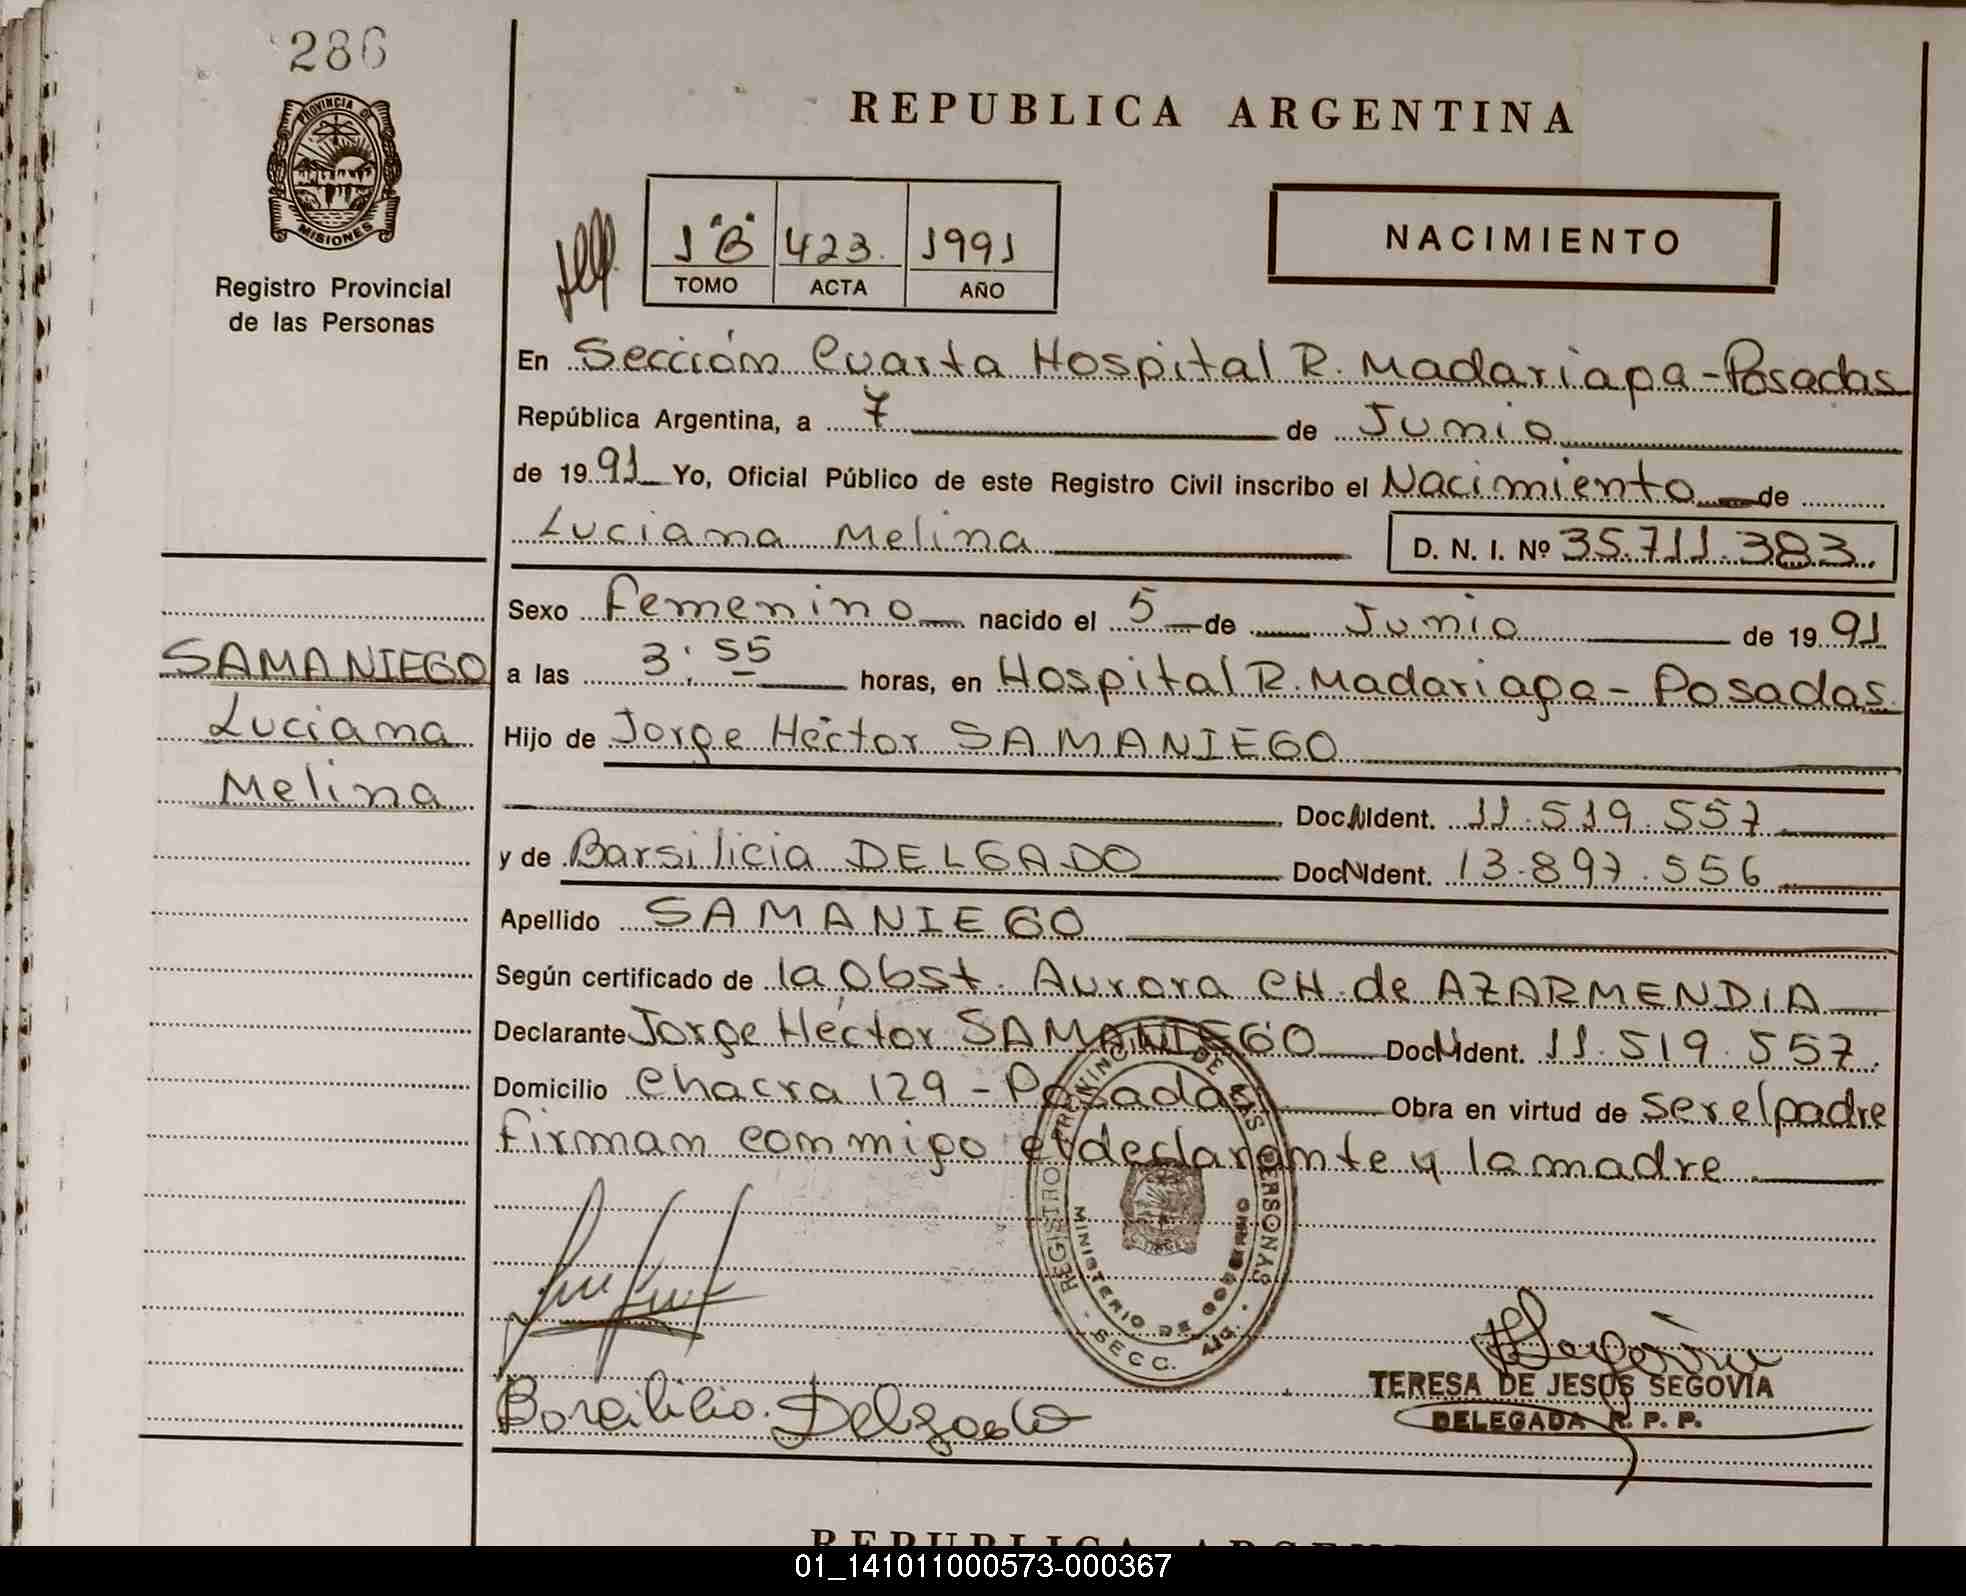 286
PROVINCIA DE
MISIONES
Registro Provincial
de las Personas
REPUBLICA ARGENTINA
1 "B" 423. 1991
TOMO ACTA AÑO
NACIMIENTO
En Sección Cuarta Hospital R. Madariaga - Posadas
República Argentina, a 7 de Junio
de 19 91 Yo, Oficial Público de este Registro Civil inscribo el Nacimiento de
Luciana Melina D. N. I. Nº 35.711.383.
Sexo Femenino nacido el 5 de Junio de 19 91
SAMANIEGO
Luciana
Melina
a las 3:55 horas, en Hospital R. Madariaga - Posadas.
Hijo de Jorge Héctor SAMANIEGO
Doc. Ident. 11.519.557
y de Barsilicia DELGADO Doc. Ident. 13.897.556
Apellido SAMANIEGO
Según certificado de la Obst. Aurora CH. de AZARMENDIA
Declarante Jorge Héctor SAMANIEGO Doc. Ident. 11.519.557.
Domicilio Chacra 129 - Posadas Obra en virtud de ser el padre
firman conmigo el declarante y la madre
REGISTRO PROVINCIAL DE LAS PERSONAS
MINISTERIO DE GOBIERNO
SECC.
Barcilicia Delgado
TERESA DE JESUS SEGOVIA
DELEGADA R. P. P.
REPUBLICA ARGENTINA
01_141011000573-000367